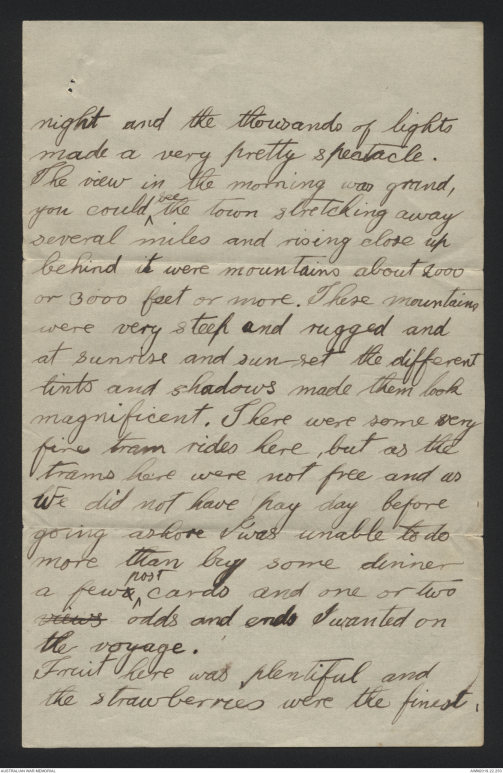 night and the thousands of lights
made a very pretty spectacle.
The view in the morning was grand,
you could see the town stretching away
several miles and rising close up
behind it were mountains about 2000
or 3000 feet or more. These mountains
were very steep and rugged and
at sunrise and sun-set the different
tints and shadows made them look
magnificent. There were some very
fine tram rides here, but as the
trams here were not free and as
we did not have pay day before
going ashore I was unable to do
more than buy some dinner
a few post cards and one or two
views odds and ends I wanted on
the voyage.
Fruit here was plentiful and
the strawberries were the finest
AUSTRALIAN WAR MEMORIAL